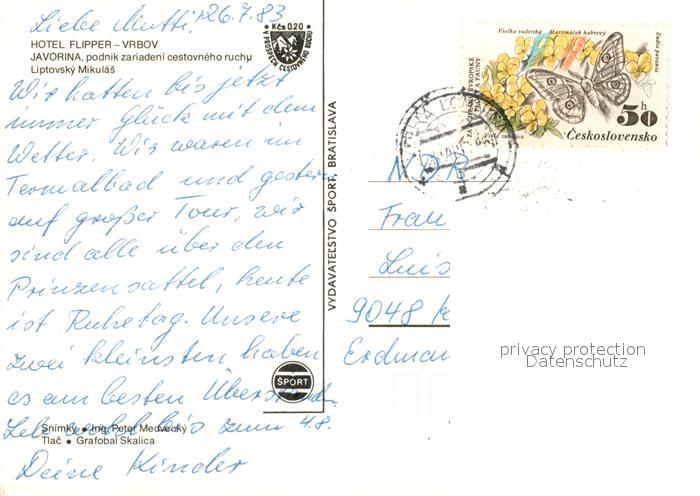 Liebe Mutti, 26.7.83
HOTEL FLIPPER – VRBOV
JAVORINA, podnik zariadení cestovného ruchu
Liptovský Mikuláš
Kčs 0.20
PROSPECH CESTOVNÉHO RUCHU
Wir hatten bis jetzt
immer Glück mit dem
Wetter. Wir waren im
Termalbad und gestern
auf großer Tour, wir
sind alle über den
Prinzensattel, heute
ist Ruhetag. Unsere
zwei kleinsten haben
es am besten Überstanden
Lebe wohl bis zum 4.8.
Deine Kinder
Snímky • Ing. Peter Medvecký
Tlač • Grafobal Skalica
VYDAVATEĽSTVO ŠPORT, BRATISLAVA
ŠPORT
Violka sudetská Martináček habrový
50 h
Československo
NDR
Frau
Luis
9048
Erdman
privacy protection
Datenschutz